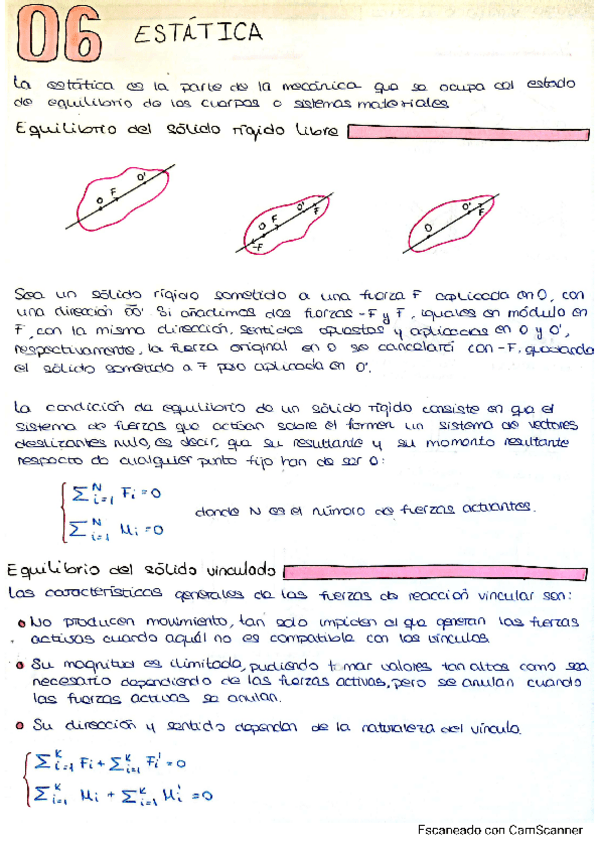 06 ESTÁTICA
La estática es la parte de la mecánica que se ocupa del estado
de equilibrio de los cuerpos o sistemas materiales
Equilibrio del sólido rígido libre
O F O'
-F O F O' F
O O' F
Sea un sólido rígido sometido a una fuerza F aplicada en O, con
una dirección OO'. Si añadimos dos fuerzas -F y F, iguales en módulo en
F, con la misma dirección, sentidos opuestos y aplicadas en O y O',
respectivamente, la fuerza original en O se cancelará con -F, quedando
el sólido sometido a F pero aplicada en O'.
La condición de equilibrio de un sólido rígido consiste en que el
sistema de fuerzas que actúan sobre él formen un sistema de vectores
deslizantes nulo, es decir, que su resultante y su momento resultante
respecto de cualquier punto fijo han de ser 0:
∑ᴺᵢ₌₁ Fi = 0
donde N es el número de fuerzas actuantes.
∑ᴺᵢ₌₁ Mi = 0
Equilibrio del sólido vinculado
Las características generales de las fuerzas de reacción vincular son:
• No producen movimiento, tan solo impiden el que generan las fuerzas
activas cuando aquél no es compatible con los vínculos
• Su magnitud es ilimitada, pudiendo tomar valores tan altos como sea
necesario dependiendo de las fuerzas activas, pero se anulan cuando
las fuerzas activas se anulan.
• Su dirección y sentido dependen de la naturaleza del vínculo.
∑ᴷᵢ₌₁ Fi + ∑ᴷᵢ₌₁ Fi' = 0
∑ᴷᵢ₌₁ Mi + ∑ᴷᵢ₌₁ Mi' = 0
Escaneado con CamScanner